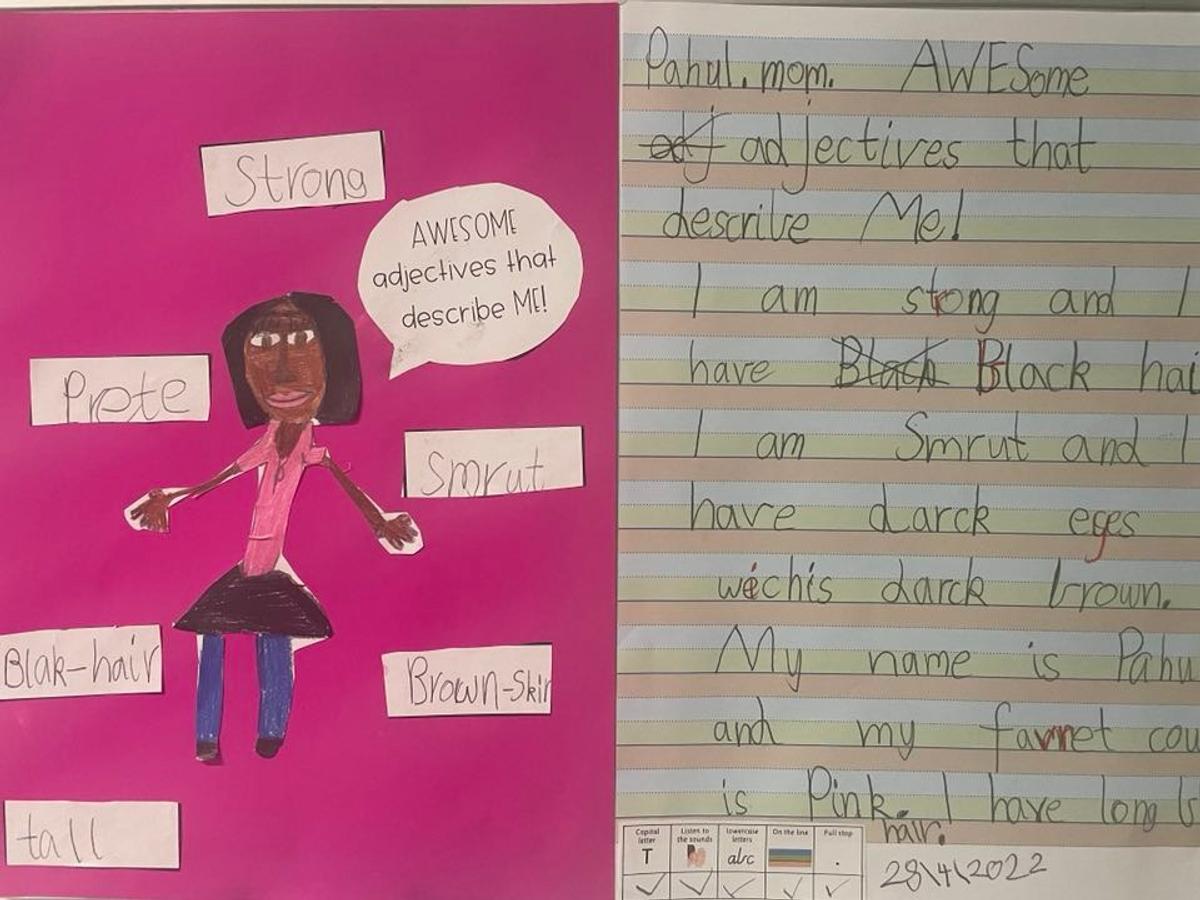 Strong
AWESOME
adjectives that
describe ME!
Prete
Smrut
Blak-hair
Brown-Skin
tall
Pahul.mom. AWESome
adj adjectives that
describe Me!
I am strong and I
have Black Black hai
I am Smrut and I
have darck eyes
wéchis darck brown.
My name is Pahu
and my favret cou
is Pink. I have long b
hair.
Capital letter
Listen to the sounds
lowercase letters
On the line
Full stop
T
abc
.
28\4\2022